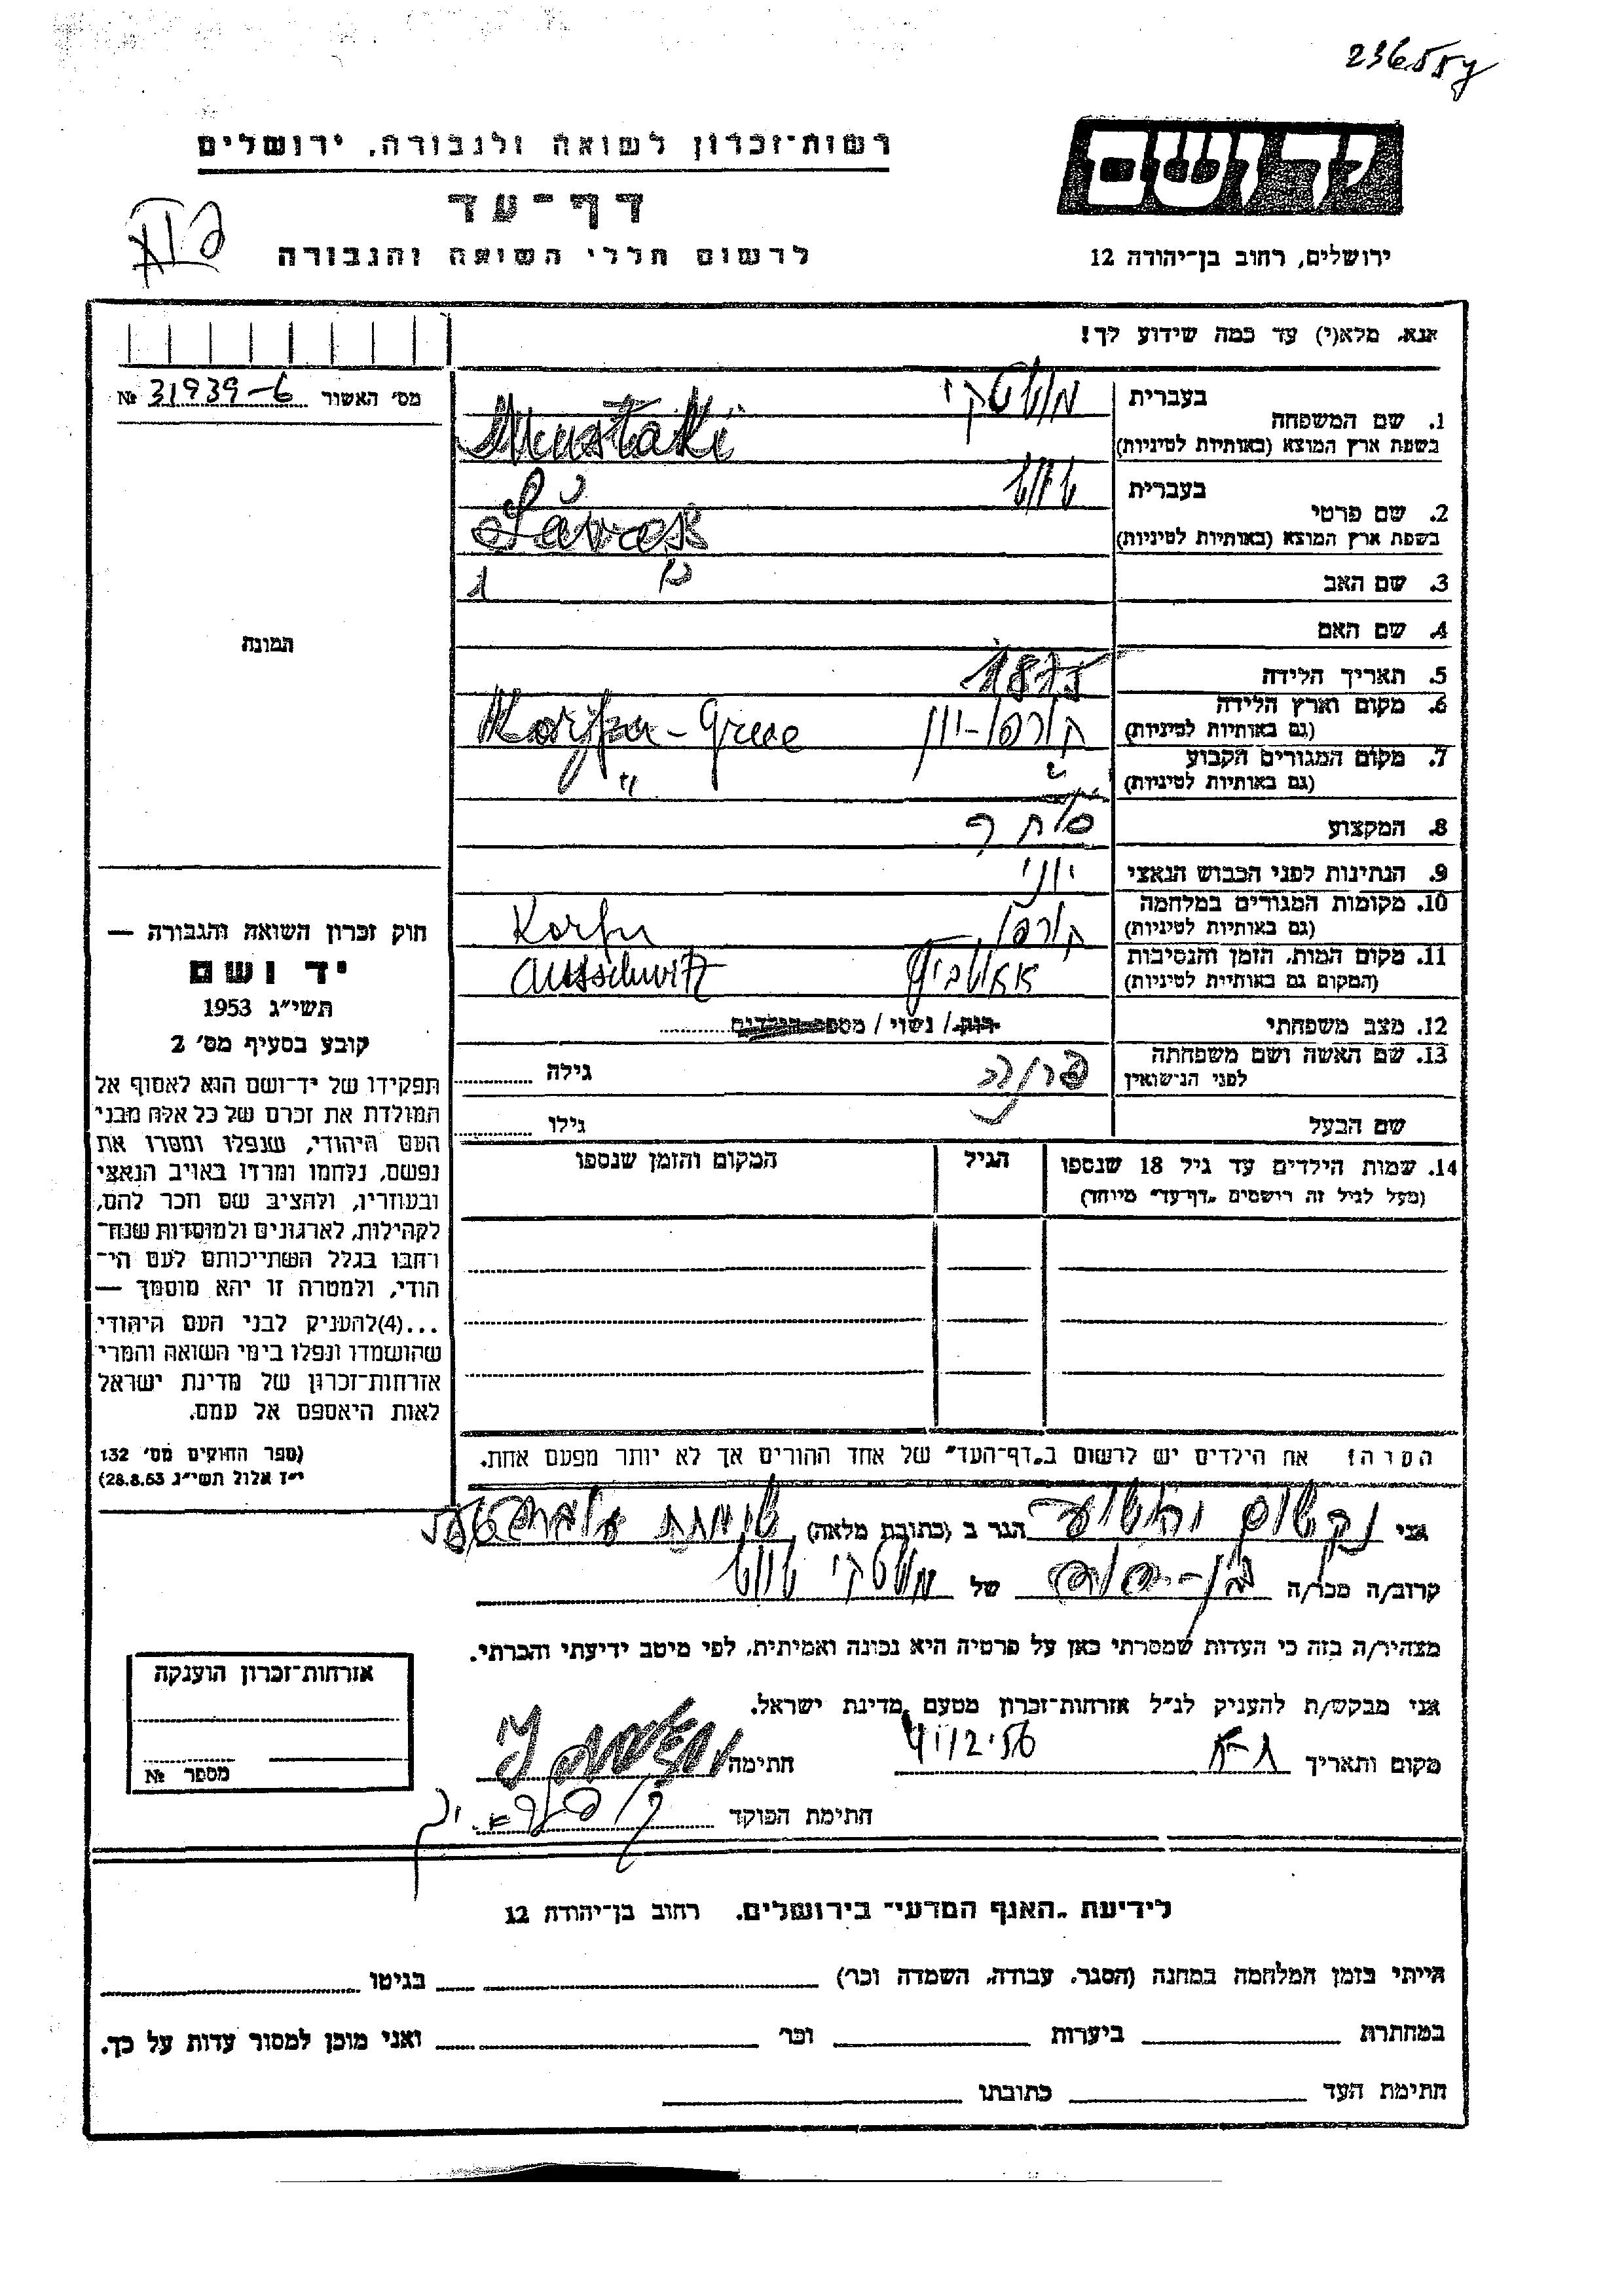 236554
רשות־זכרון לשואה ולגבורה, ירושלים
יד ושם
דף־עד
לרשום חללי השואה והגבורה
ירושלים, רחוב בן־יהודה 12
אנא, מלא(י) עד כמה שידוע לך!
מס׳ האשור 31939-6 №
בעברית מוסטקי
1. שם המשפחה
בשפת ארץ המוצא (באותיות לטיניות) Mustaki
בעברית
2. שם פרטי
בשפת ארץ המוצא (באותיות לטיניות)
3. שם האב
4. שם האם
תמונה
5. תאריך הלידה 1875
6. מקום וארץ הלידה קורפו-יון
(גם באותיות לטיניות)
7. מקום המגורים הקבוע "
(גם באותיות לטיניות) "
8. המקצוע סוחר
9. הנתינות לפני הכבוש הנאצי יוני
10. מקומות המגורים במלחמה קורפו Korfu
(גם באותיות לטיניות)
11. מקום המות, הזמן והנסיבות אאושביץ Ausschwitz
(המקום גם באותיות לטיניות)
12. מצב משפחתי רוק / נשוי / מספר הילדים
13. שם האשה ושם משפחתה גילה
לפני הנישואין
שם הבעל גילו
14. שמות הילדים עד גיל 18 שנספו הגיל המקום והזמן שנספו
(מעל לגיל זה רושמים „דף־עד” מיוחד)
חוק זכרון השואה והגבורה —
יד ושם
תשי״ג 1953
קובע בסעיף מס׳ 2
תפקידו של יד־ושם הוא לאסוף אל
המולדת את זכרם של כל אלה מבני
העם היהודי, שנפלו ומסרו את
נפשם, נלחמו ומרדו באויב הנאצי
ובעוזריו, ולהציב שם וזכר להם,
לקהילות, לארגונים ולמוסדות שנח־
רחבו בגלל השתייכותם לעם הי־
הודי, ולמטרה זו יהא מוסמך —
...(4)להעניק לבני העם היהודי
שהושמדו ונפלו בימי השואה והמרי
אזרחות־זכרון של מדינת ישראל
לאות היאספם אל עמם.
(ספר החוקים מס׳ 132
י״ז אלול תשי״ג 28.8.53)
הערה: את הילדים יש לרשום ב„דף־העד” של אחד ההורים אך לא יותר מפעם אחת.
אני הגר ב (כתובת מלאה)
קרוב/ה מכר/ה של מוסטקי
מצהיר/ה בזה כי העדות שמסרתי כאן על פרטיה היא נכונה ואמיתית, לפי מיטב ידיעתי והכרתי.
אני מבקש/ת להעניק לנ״ל אזרחות־זכרון מטעם מדינת ישראל.
מקום ותאריך ת-א חתימה
חתימת הפוקד
אזרחות־זכרון הוענקה
מספר №
לידיעת „האגף המדעי” בירושלים, רחוב בן־יהודה 12
הייתי בזמן המלחמה במחנה (הסגר, עבודה, השמדה וכר׳) בגיטו
במחתרת ביערות וכר׳ ואני מוכן למסור עדות על כך.
חתימת העד כתובתו